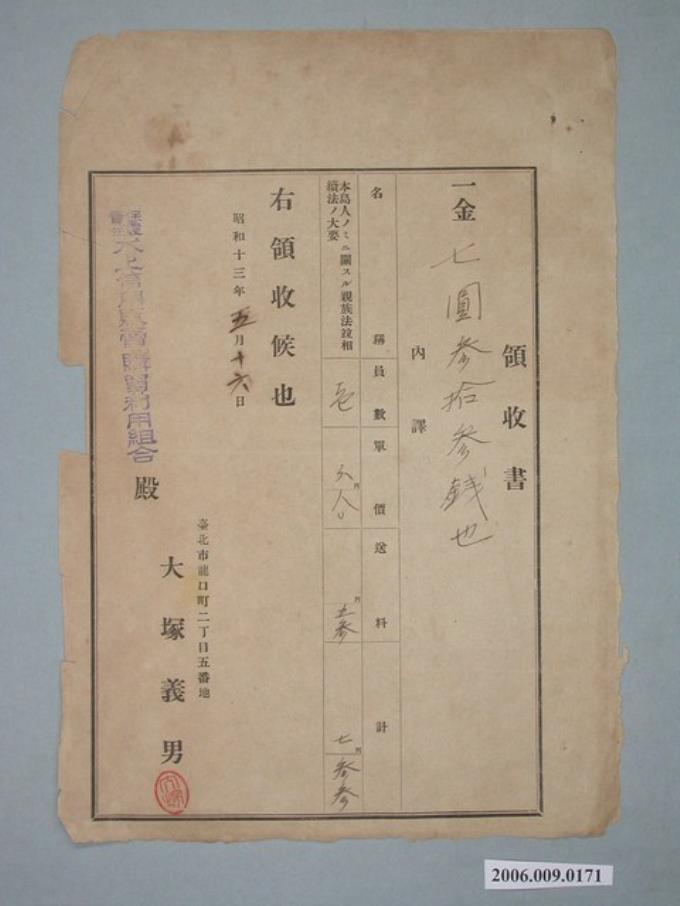 領收書
一金 七圓參拾參錢也
內譯
名稱 員數 單價 送料 計
本島人ノミニ關スル親族法竝相續法ノ大要 壱 六円八〇 五參 七円參參
右領收候也
昭和十三年五月十六日
臺北市龍口町二丁目五番地
大塚義男
保證責任 水上信用販賣購買利用組合 殿
2006.009.0171